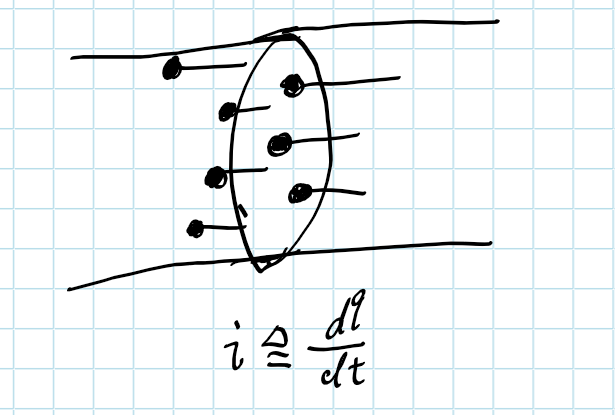 i ≙ dq/dt